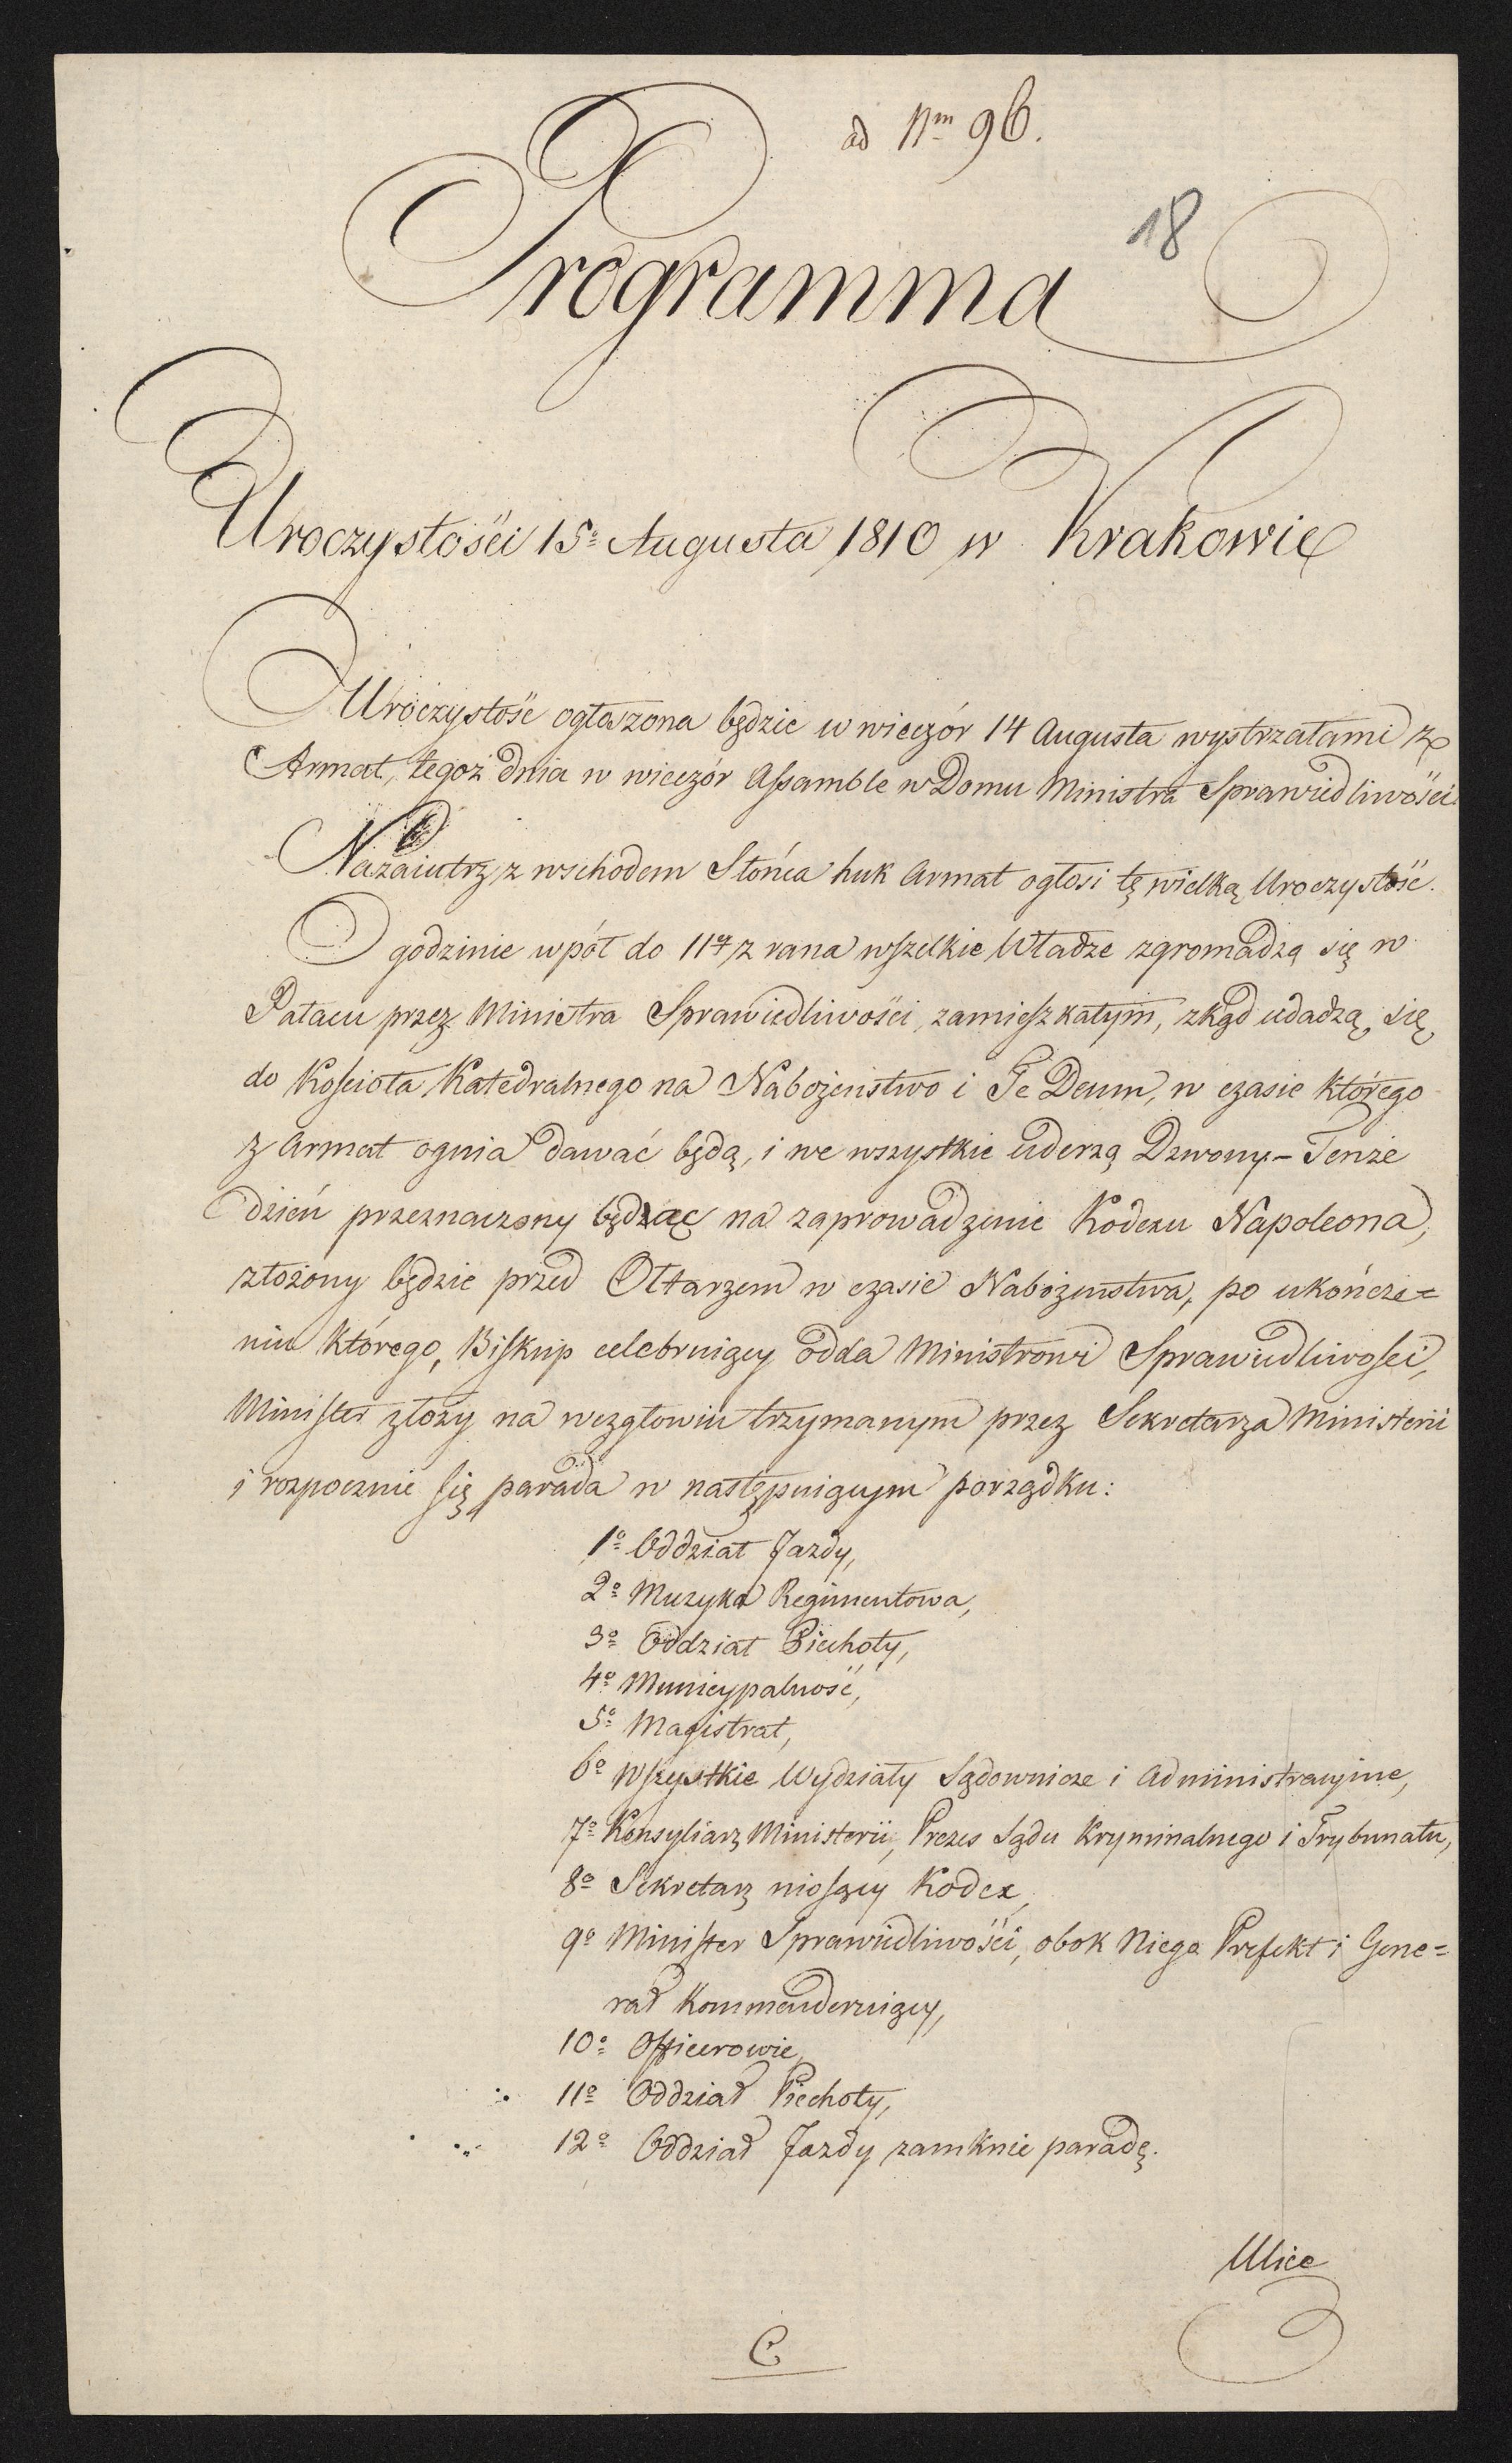 ad Nm 96.
18
Programma
Uroczystości 15o Augusta 1810 w Krakowie
Uroczystość ogłoszona będzie w wieczór 14 Augusta wystrzałami z
Armat, tegoż dnia w wieczór Assamble w Domu Ministra Sprawiedliwości.
Nazaiutrz z wschodem Słońca huk Armat ogłosi tę wielką Uroczystość.
O godzinie wpół do 11ey z rana wszelkie Władze zgromadzą się w
Pałacu przez Ministra Sprawiedliwości zamieszkałym, zkąd udadzą się
do Kościoła Katedralnego na Nabożeństwo i Te Deum, w czasie którego
z Armat ognia dawać będą, i we wszystkie uderzą Dzwony - Tenże
dzień przeznaczony będąc na zaprowadzenie Kodexu Napoleona,
złożony będzie przed Ołtarzem w czasie Nabożenstwa, po ukończe=
niu którego, Biskup celebruiący odda Ministrowi Sprawiedliwości,
Minister złoży na wezgłowiu trzymanym przez Sekretarza Ministerii
i rozpocznie się parada w następuiącym porządku:
1o Oddział Jazdy,
2o Muzyka Regimentowa,
3o Oddział Piechoty,
4o Municypalność,
5o Magistrat,
6o Wszystkie Wydziały Sądownicze i Administracyine,
7o Konsyliarz Ministerii, Prezes Sądu Kryminalnego i Trybunału,
8o Sekretarz niosący Kodex,
9o Minister Sprawiedliwości, obok Niego Prefekt i Gene=
rał Kommenderuiący,
10o Officerowie,
11o Oddział Piechoty,
12o Oddział Jazdy zamknie paradę.
Ulice
C